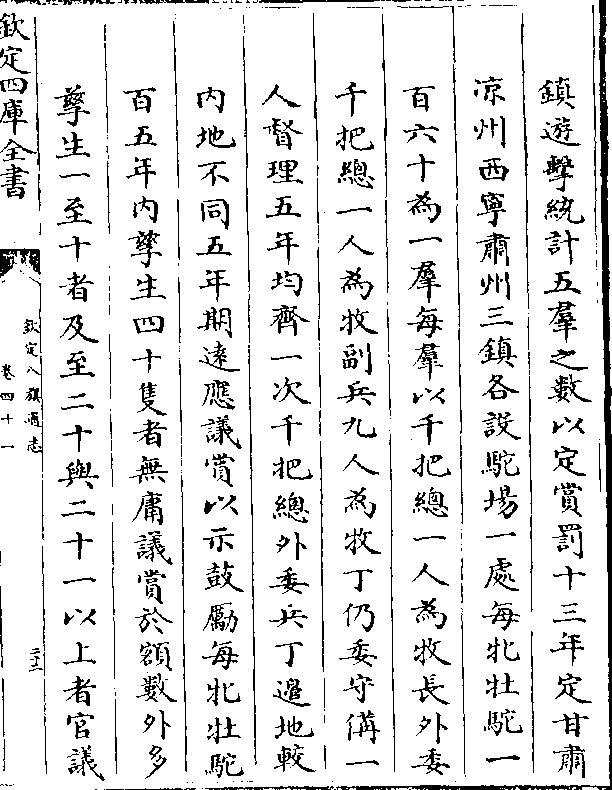 鎮遊擊統計五羣之數以定賞罰十三年定甘肅
凉州西寧肅州三鎮各設駝場一處每牝牡駝一
百六十為一羣每羣以千把總一人為牧長外委
千把總一人為牧副兵九人為牧丁仍委守備一
人督理五年均齊一次千把總外委兵丁邉地較
内地不同五年期逺應議賞以示鼓勵每牝牡駝
百五年内孳生四十隻者無庸議賞於額數外多
孳生一至十者及至二十與二十一以上者官議
欽定四庫全書
欽定八旗通志
卷四十一